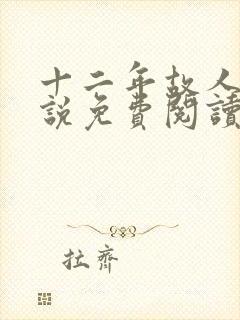 十二年故人
說免費閱讀
拉齊